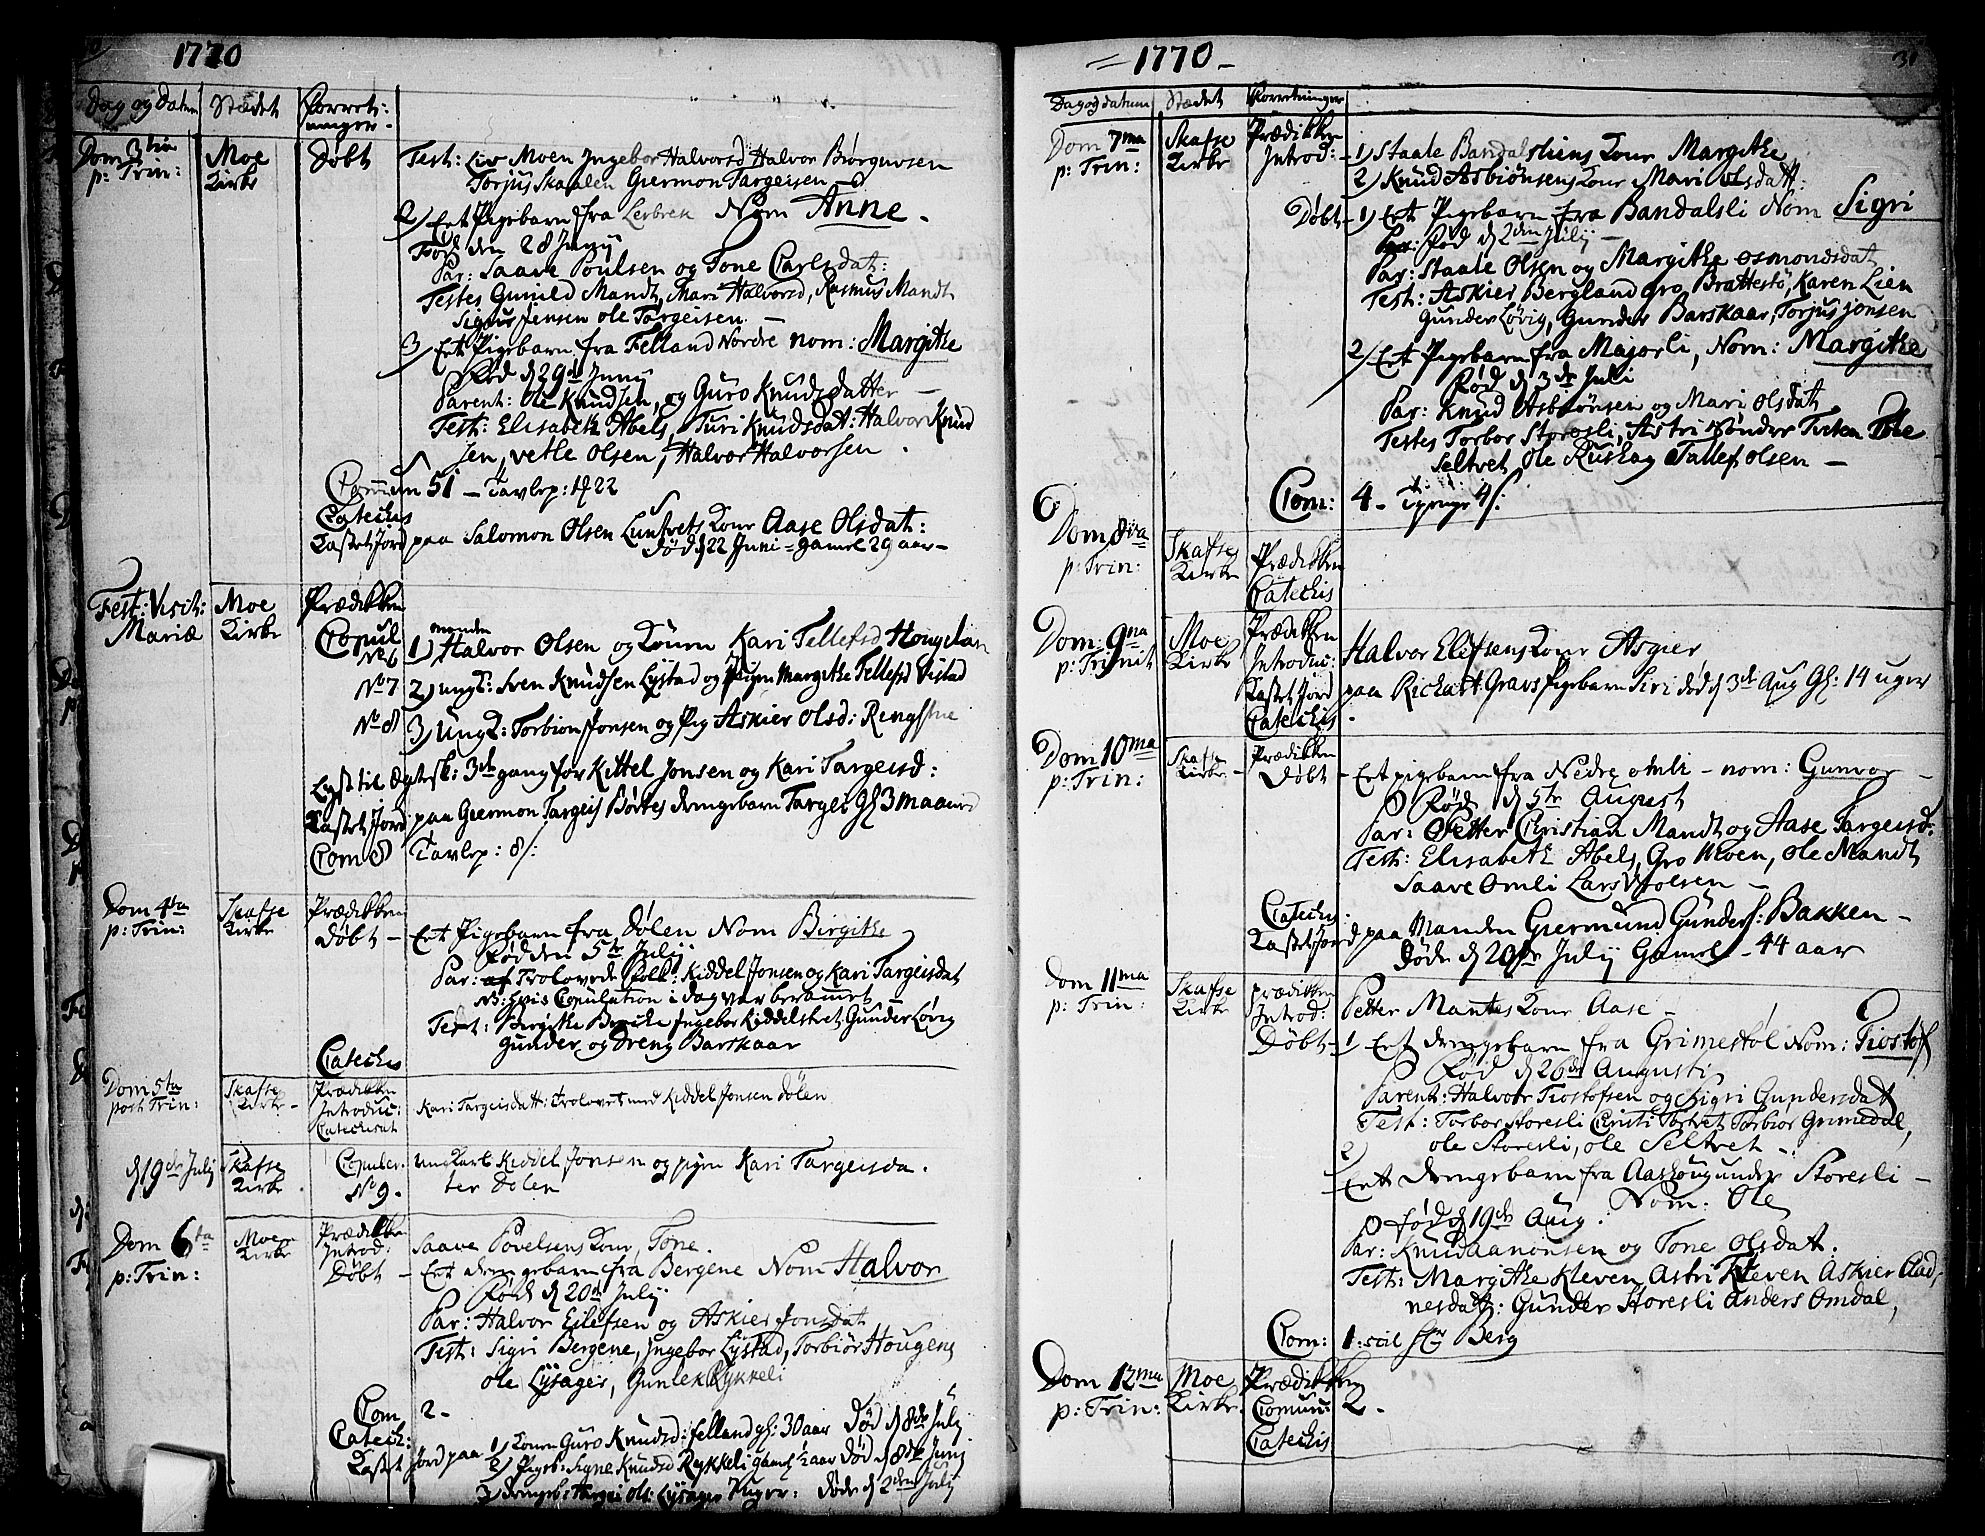 1770
Dag og Datum Stædet Forret-
ninger.
Dom 3tia p: Trin: Moe Kirke Døbt Test: Liv Moen Ingebor Halvorsd Halvor Biørguvsen
Torjus Skaalen Giermon Targeisen
2) Eet Pigebarn fra Nom Anne.
Fød den 28 Junij
Par: Saave Poulsen og Tone Carlsdat:
Testes Gunild Mandt, Mari Halvorsd, Rasmus Mandt
Jensen ole Targeisen.
3) Eet Pigebarn fra Felland Nordre nom: Margithe
Fød d 29de Junij
Parent: Ole Knudsen, og Guro Knudsdatter
Test: Elisabeth Abels, Turi Knudsdat: Halvor Knud
sen, vetle Olsen, Halvor Halvorsen.
Comm 51 – Tavlep: 22
Catechis
Kastet Jord paa Salomon Olsen Luntvets Kone Aase Olsdat:
død d 22 Juni – gamel 29 aar –
Fest: Visit: Mariæ Moe Kirke Prædikken
Copul No 6 1) manden Halvor Olsen og Konen Kari Tellefsd
No 7 2) ungk: Sven Knudsen Lystad og Pigen Margithe Tellefsd Vistad
No 8 3) Ungk: Torbion Jonsen og Pig Askier Olsd:
Lyst til Ægtesk: 3de gang for Kittel Jonsen og Kari Targeisd:
Kastet Jord paa Giermon Targeis Børtes drengebarn Targei Gl 3 maaned
Com 8 Tavlep: 8/:
Dom 4ta p: Trin: Skafse Kirke Prædikken
Døbt – Eet Pigebarn fra Dølen Nom Birgithe
Fød den 5te Julij
Par: af Trolovede Folk: Kiddel Jonsen og Kari Targeisdat
NB: hvis Copulation i dag var berammet
Test: Birgithe Ingebor Kiddelstvet, Gunder Løvig
Gunder og Dreng Barskaar
Catechis
Dom 5ta post Trin: Skafse Kirke – Prædikken
Introduc: Kari Targeisdatt: trolovet med Kiddel Jonsen dølen
Catechisat
d 19de Julij Skafse Kirke Copuler. ungkarl Kiddel Jonsen og pigen Kari Targeisda.
No 9. ter Dolen
Dom 6ta p: Trin: Moe Kirke Prædikken
Introd: Saave Povelsens Kone, Tone.
Døbt – Eet drengebarn fra Bergene Nom Halvor
Fød d 20de Julij
Par: Halvor Eilefsen og Askier Jonsdat
Test: Sigri Bergene, Ingebor Lystad, Torbiør Hougene
ole Lysager, Gunlek Rykkeli
Com 2 –
Catech:
Kastet Jord paa 1) Konen Guro Knudsd: felland gl: 30 aar Død d 8de July
2) Pigeb: Signe Knudsd Rykkeli gamel ½ aar død d 8de Junj
3) drengeb: Targei Ols: Lysager 7 uger: døde d 2den Julij
= 1770 –
31
Dag og datum Stædet Forretninger
Dom 7ma p: Trin: Skafse Kirke Prædikken
Introd: – 1) Staale Bandalsliens Kone Margithe
2) Knud Asbiønsens Kone Mari olsdatt:
Døbt – 1) Eet Pigebarn fra Bandalsli Nom Sigri
Fød d 2den Julij –
Par: Staale Olsen og Margithe osmondsdat
Test: Askier Bergland gro Brattestö, Karen Lien
Gunder Løvig, Gunder Barskaar, Torjus jonsen
2) Eet Pigebarn fra Majorli, Nom: Margithe
Fød d 3de Juli
Par: Knud Asbiønsen og Mari olsdat
Testes Torbor Storesli, Astri Tone
Seltvet, Ole Ruskag Tallef olsen –
Com: 4 – 4/:
Dom 8va p: Trin: Skafse Kirke Prædikken
Catechis
Dom 9na p: Trinit Moe Kirke Prædikken
Introduc: Halvor Elifsens Kone Asgier
Kastet Jord paa Richart Gravs Pigebarn Siri død d 3de Aug Gl: 14 uger
Catechis.
Dom 10ma p: Trin: Skafse Kirke – Prædikken
Døbt – Eet pigebarn fra Nedre omli – nom: Gunvor –
Fød d 5te August
Par: Petter Christian Mandt og Aase Targeisd:
Test: Elisabeth Abels, Gro Moen, Ole Mandt
Saave Omli Lars Olsen –
Catechis.
Kastet Jord paa Manden Giermund Gunders: Bakken –
Døde d 20de Julij Gamel – 44 aar
Dom 11ma p: Trin: Skafse Kirke prædikken
Introd: Petter Mantes Kone Aase –
Døbt – 1 Eet drengebarn fra Grimestøl Nom: Tiostof
Fød d 26de Augusti
Parent: Halvor Tiostofsen og Sigri Gundersdat
Test: Torbor Storesli Cristi Tortvet Torbiør Grimedal,
ole Storesli, ole Seltvet –
2) Eet drengebarn fra Aashoug under Storesli –
Nom: Ole
Fød d 19de Aug.
Par: Knud aanonsen og Tone Olsdat.
Test: Margithe Kleven Astri Kleven Askier Aad
nesdatt: Gunder Storesli Anders Omdal,
Com: 1: scil Berg
Dom 12ma p: Trin: Moe Kirke. Prædikken
Comun: 2.
Catechis